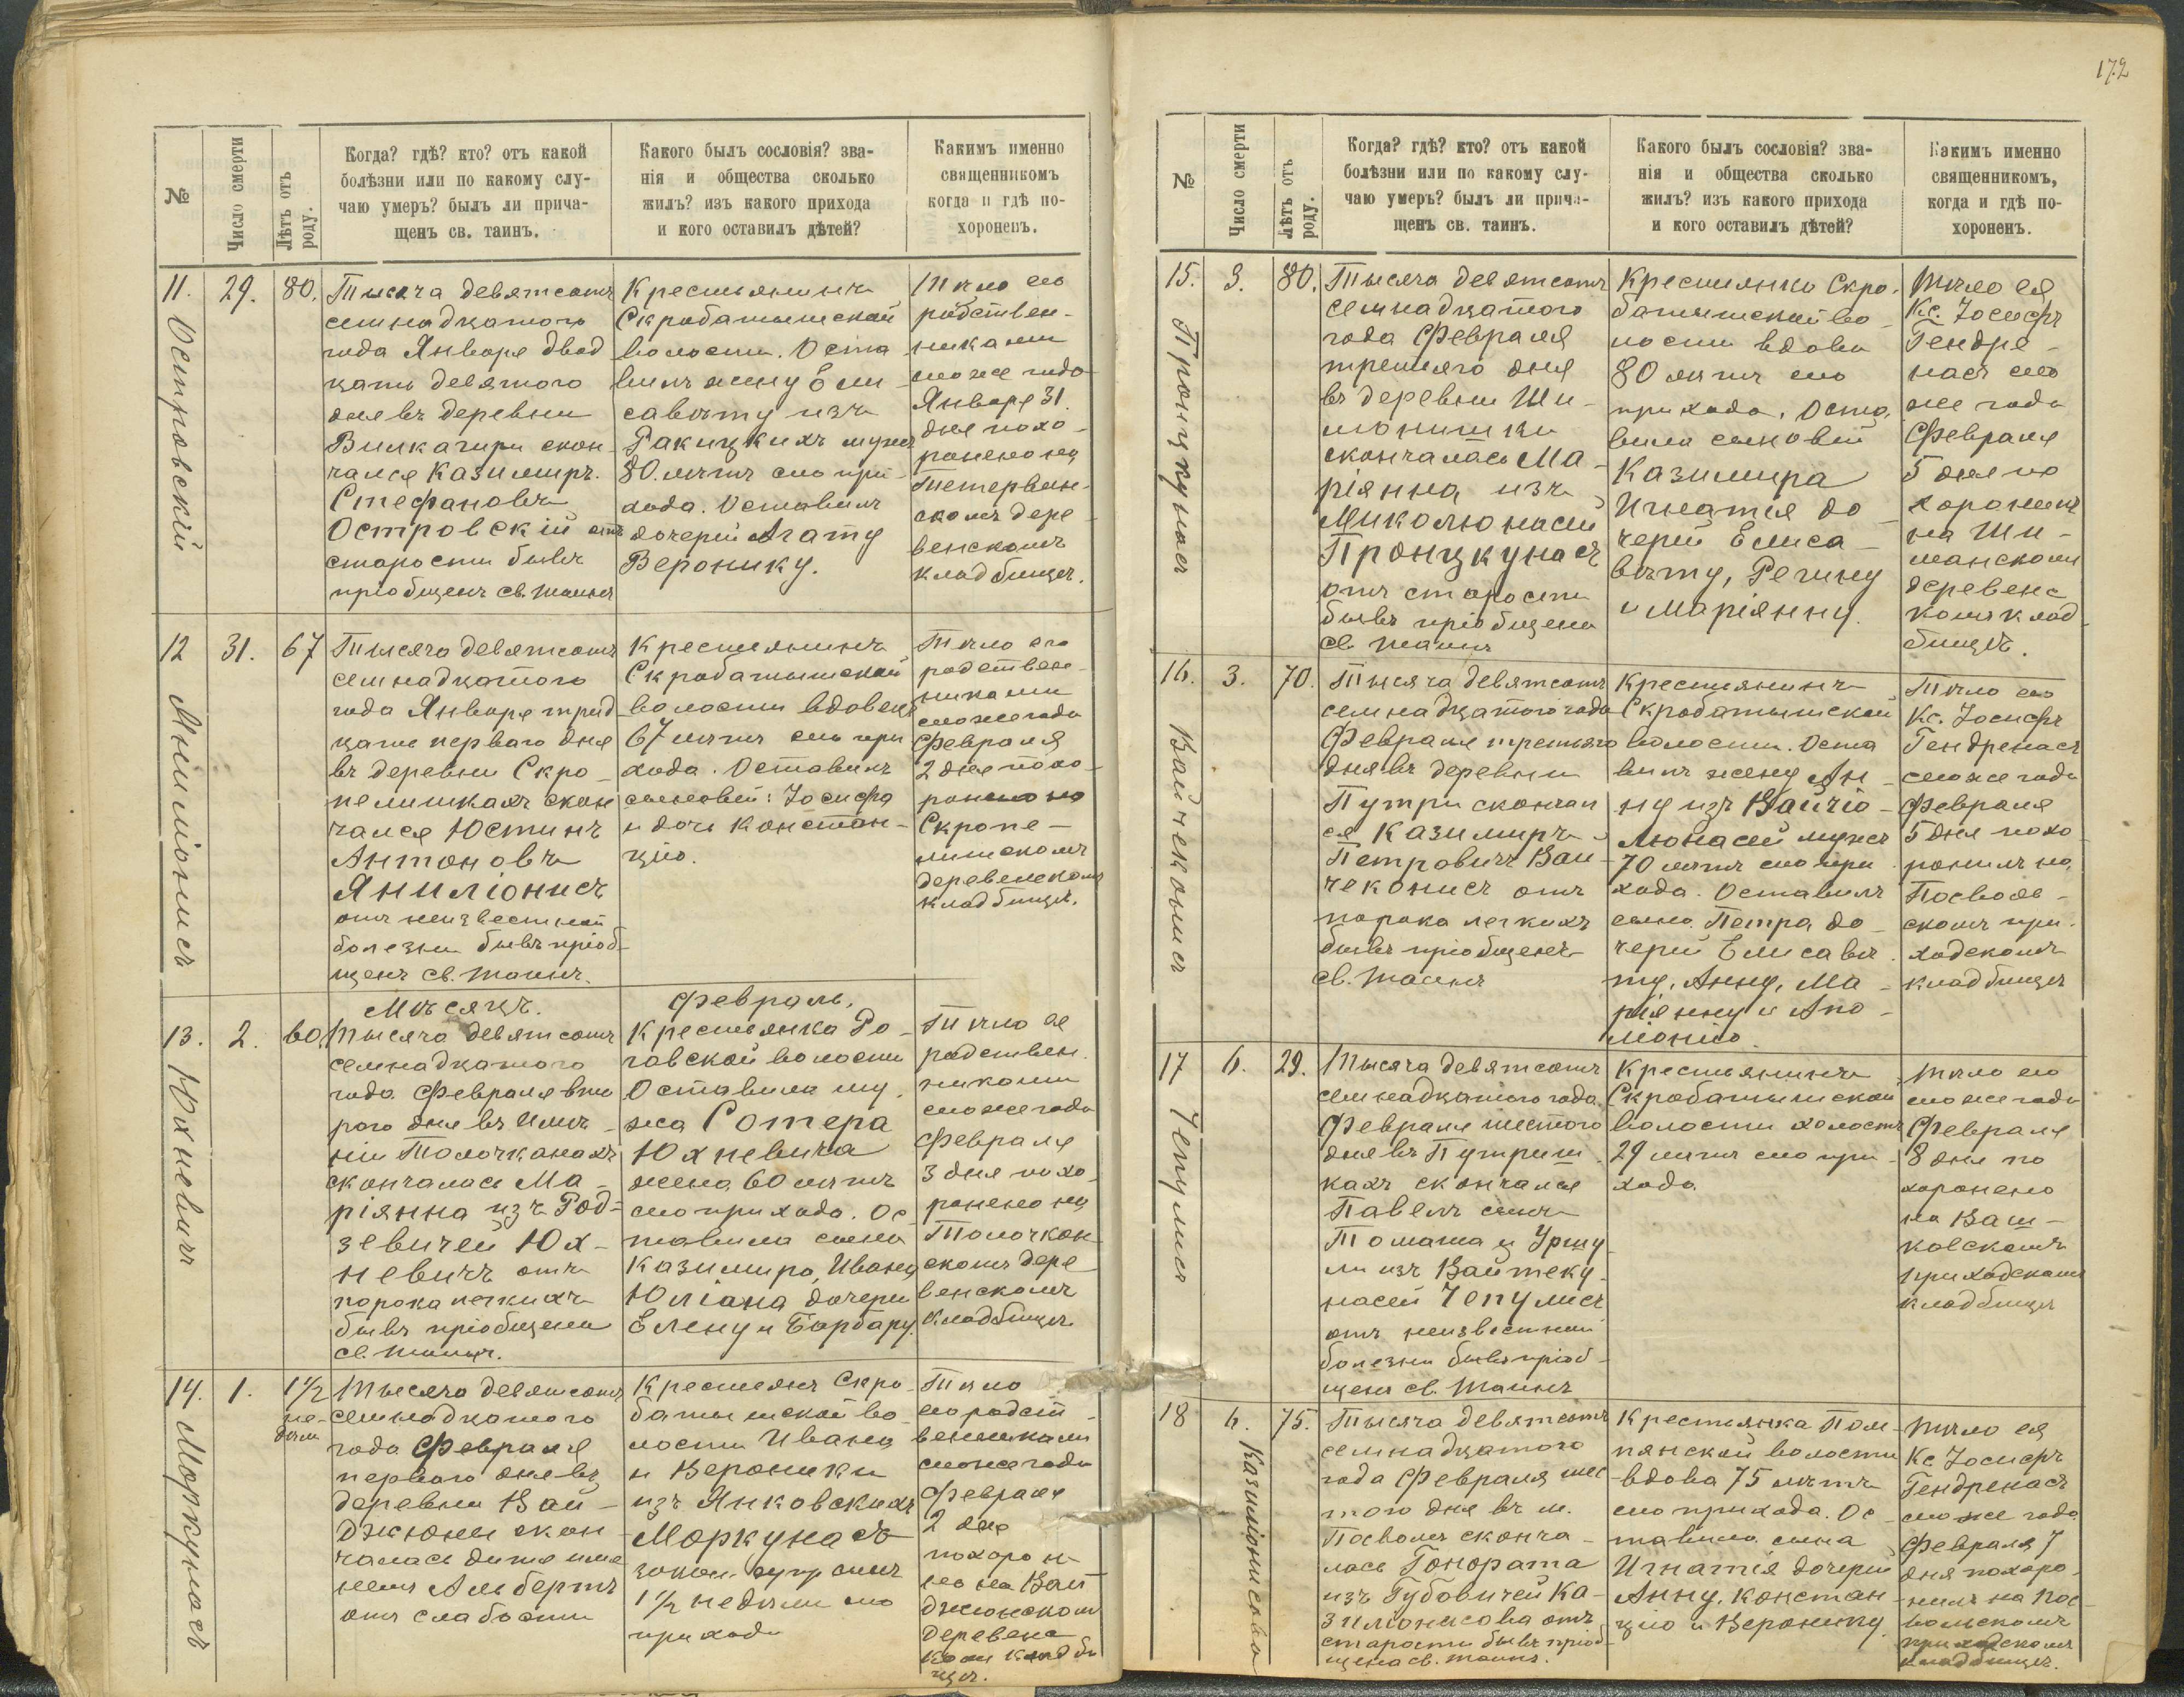 172
№
Число смерти
Лѣтъ отъ роду.
Когда? гдѣ? кто? отъ какой
болѣзни или по какому слу-
чаю умеръ? былъ ли прича-
щенъ св. таинъ.
Какого былъ сословія? зва-
нія и общества сколько
жилъ? изъ какого прихода
и кого оставилъ дѣтей?
Какимъ именно
священникомъ
когда и гдѣ по-
хороненъ.
11.
Островскій
29.
80.
Тысяча девятсотъ
семнадцатого
года Января двад
цать девятого
дня въ деревни
Вилкагири скон-
чался Казимиръ
Стефановъ
Островскій отъ
старости бывъ
пріобщенъ св. таинъ
Крестьянинъ
Скробатышской
волости. Оста
вилъ жену Ели-
савѣту изъ
Ракицкихъ мужъ
80. лѣтъ сго при-
хода. Оставилъ
дочерей Агату
Веронику.
Тѣло его
родствен-
никами
сгоже года
Января 31.
дня похо-
ронено на
Тетервин-
скомъ дере-
венскомъ
кладбищѣ.
12
Янилюнисъ
31.
67
Тысяча девятсотъ
семнадцатого
года Января трид
цать перваго дня
въ деревни Скро-
пелишкахъ скон
чался Юстинъ
Антоновъ
Яниліонисъ
отъ неизвестной
болезни бывъ пріоб-
щенъ св. таинъ.
Крестьянинъ
Скробатышской
волости вдовецъ
67 лѣтъ сго при
хода. Оставилъ
сыновей: Іосифа
и дочь Констан-
цію.
Тѣло его
родствен-
никами
сгоже года
Февраля
2 дня похо-
ронено на
Скропе-
лишскомъ
деревенскомъ
кладбищѣ.
Мѣсяцъ. Февраль.
13.
Юхневичъ
2.
60.
Тысяча девятсотъ
семнадцатого
года Февраля вто
рого дня въ имѣ-
ніи Толочканахъ
скончалась Ма-
ріянна изъ Род-
зевичей Юх-
невичъ отъ
порока легкихъ
бывъ пріобщена
св. таинъ.
Крестьянка Ро-
говской волости
Оставила му-
жа Сотера
Юхневича
жена 60 лѣтъ
сго прихода. Ос-
тавила сына
Казимира, Ивана
Юліана дочери
Елену и Барбару.
Тѣло ея
родствен-
никами
сгоже года
Февраля
3 дня похо-
ронено на
Толочкан-
скомъ дере
венскомъ
кладбищѣ
14.
Моркунасъ
1.
1 1/2
не-
дѣли
Тысяча девятсотъ
семнадцатого
года Февраля
перваго дня въ
деревни Вай-
джюни скон
чалась дитя име
немъ Альбертъ
отъ слабости
Крестьянъ Скро-
батышской во-
лости Ивана
и Вероники
изъ Янковскихъ
Моркунасъ
закон. супр сынъ
1 1/2 недѣли сго
прихода
Тѣло
его родст-
венниками
сгоже года
Февраля
2 дня
похоро н-
но на Вай
джюнском
деревенс
ком кладби
щѣ.
№
Число смерти
Лѣтъ отъ роду.
Когда? гдѣ? кто? отъ какой
болѣзни или по какому слу-
чаю умеръ? былъ ли прича-
щенъ св. таинъ.
Какого былъ сословія? зва-
нія и общества сколько
жилъ? изъ какого прихода
и кого оставилъ дѣтей?
Какимъ именно
священникомъ,
когда и гдѣ по-
хороненъ.
15.
Пронцкунасъ
3.
80.
Тысяча девятсотъ
семнадцатого
года Февраля
третьяго дня
въ деревни Ши-
монишки
скончалась Ма-
ріянна изъ
Миколюнасей
Пронцкунасъ
отъ старости
бывъ пріобщена
св. таинъ
Крестьянка Скро-
батышской во-
лости вдова
80 лѣтъ сго
прихода. Оста-
вила сыновей
Казимира
Игнатія до-
черей Елиса-
вѣту, Регину
и Маріянну.
Тѣло ея
Кс. Іосифъ
Гендре-
насъ сго
же года
Февраля
5 дня по
хоронилъ
на Ши-
манскомъ
деревенс
комъ клад-
бищѣ.
16.
Вайчеконисъ
3.
70.
Тысяча девятсотъ
семнадцатого года
Февраля третьяго
дня въ деревни
Путри скончал
ся Казимиръ
Петровичъ Вай-
чеконисъ отъ
порока легкихъ
бывъ пріобщенъ
св. таинъ
Крестьянинъ
Скробатышской
волости. Оста
вилъ жену Ан-
ну изъ Вайчіо-
люнасей мужъ
70 лѣтъ сго при
хода. Оставилъ
сына Петра, до-
черей Елисавѣ-
ту, Анну, Ма-
ріянну и Апо-
лонію.
Тѣло его
Кс. Іосифъ
Гендренасъ
сгоже года
Февраля
5 дня похо
ронилъ на
Посволь-
скомъ при-
ходскомъ
кладбищѣ
17
Чепулисъ
6.
29.
Тысяча девятсотъ
семнадцатого года
Февраля шестого
дня въ Путриш-
кахъ скончался
Павелъ сынъ
Томаша и Уршу-
ли изъ Вайтеку-
насей Чепулисъ
отъ неизвестной
болезни бывъ пріоб-
щенъ св. таинъ
Крестьянинъ
Скробатышской
волости холостъ
29 лѣтъ сго при-
хода.
Тѣло его
сгоже года
Февраля
8 дня по
хоронено
на Ваш-
ковскомъ
приходскомъ
кладбищѣ
18
Казиліонисова
6.
75.
Тысяча девятсотъ
семнадцатого
года Февраля шес
того дня въ м.
Посволь сконча-
лась Гонората
изъ Губовичей Ка-
зиліонисова отъ
старости бывъ пріоб-
щена св. таинъ.
Крестьянка Пом-
пянской волости
вдова 75 лѣтъ
сго прихода. Ос-
тавила сына
Игнатія дочерей
Анну, Констан-
цію и Веронику
Тѣло ея
Кс Іосифъ
Гендренасъ
сгоже года
Февраля 7
дня похоро-
нилъ на Пос
вольскомъ
приходскомъ
кладбищѣ.